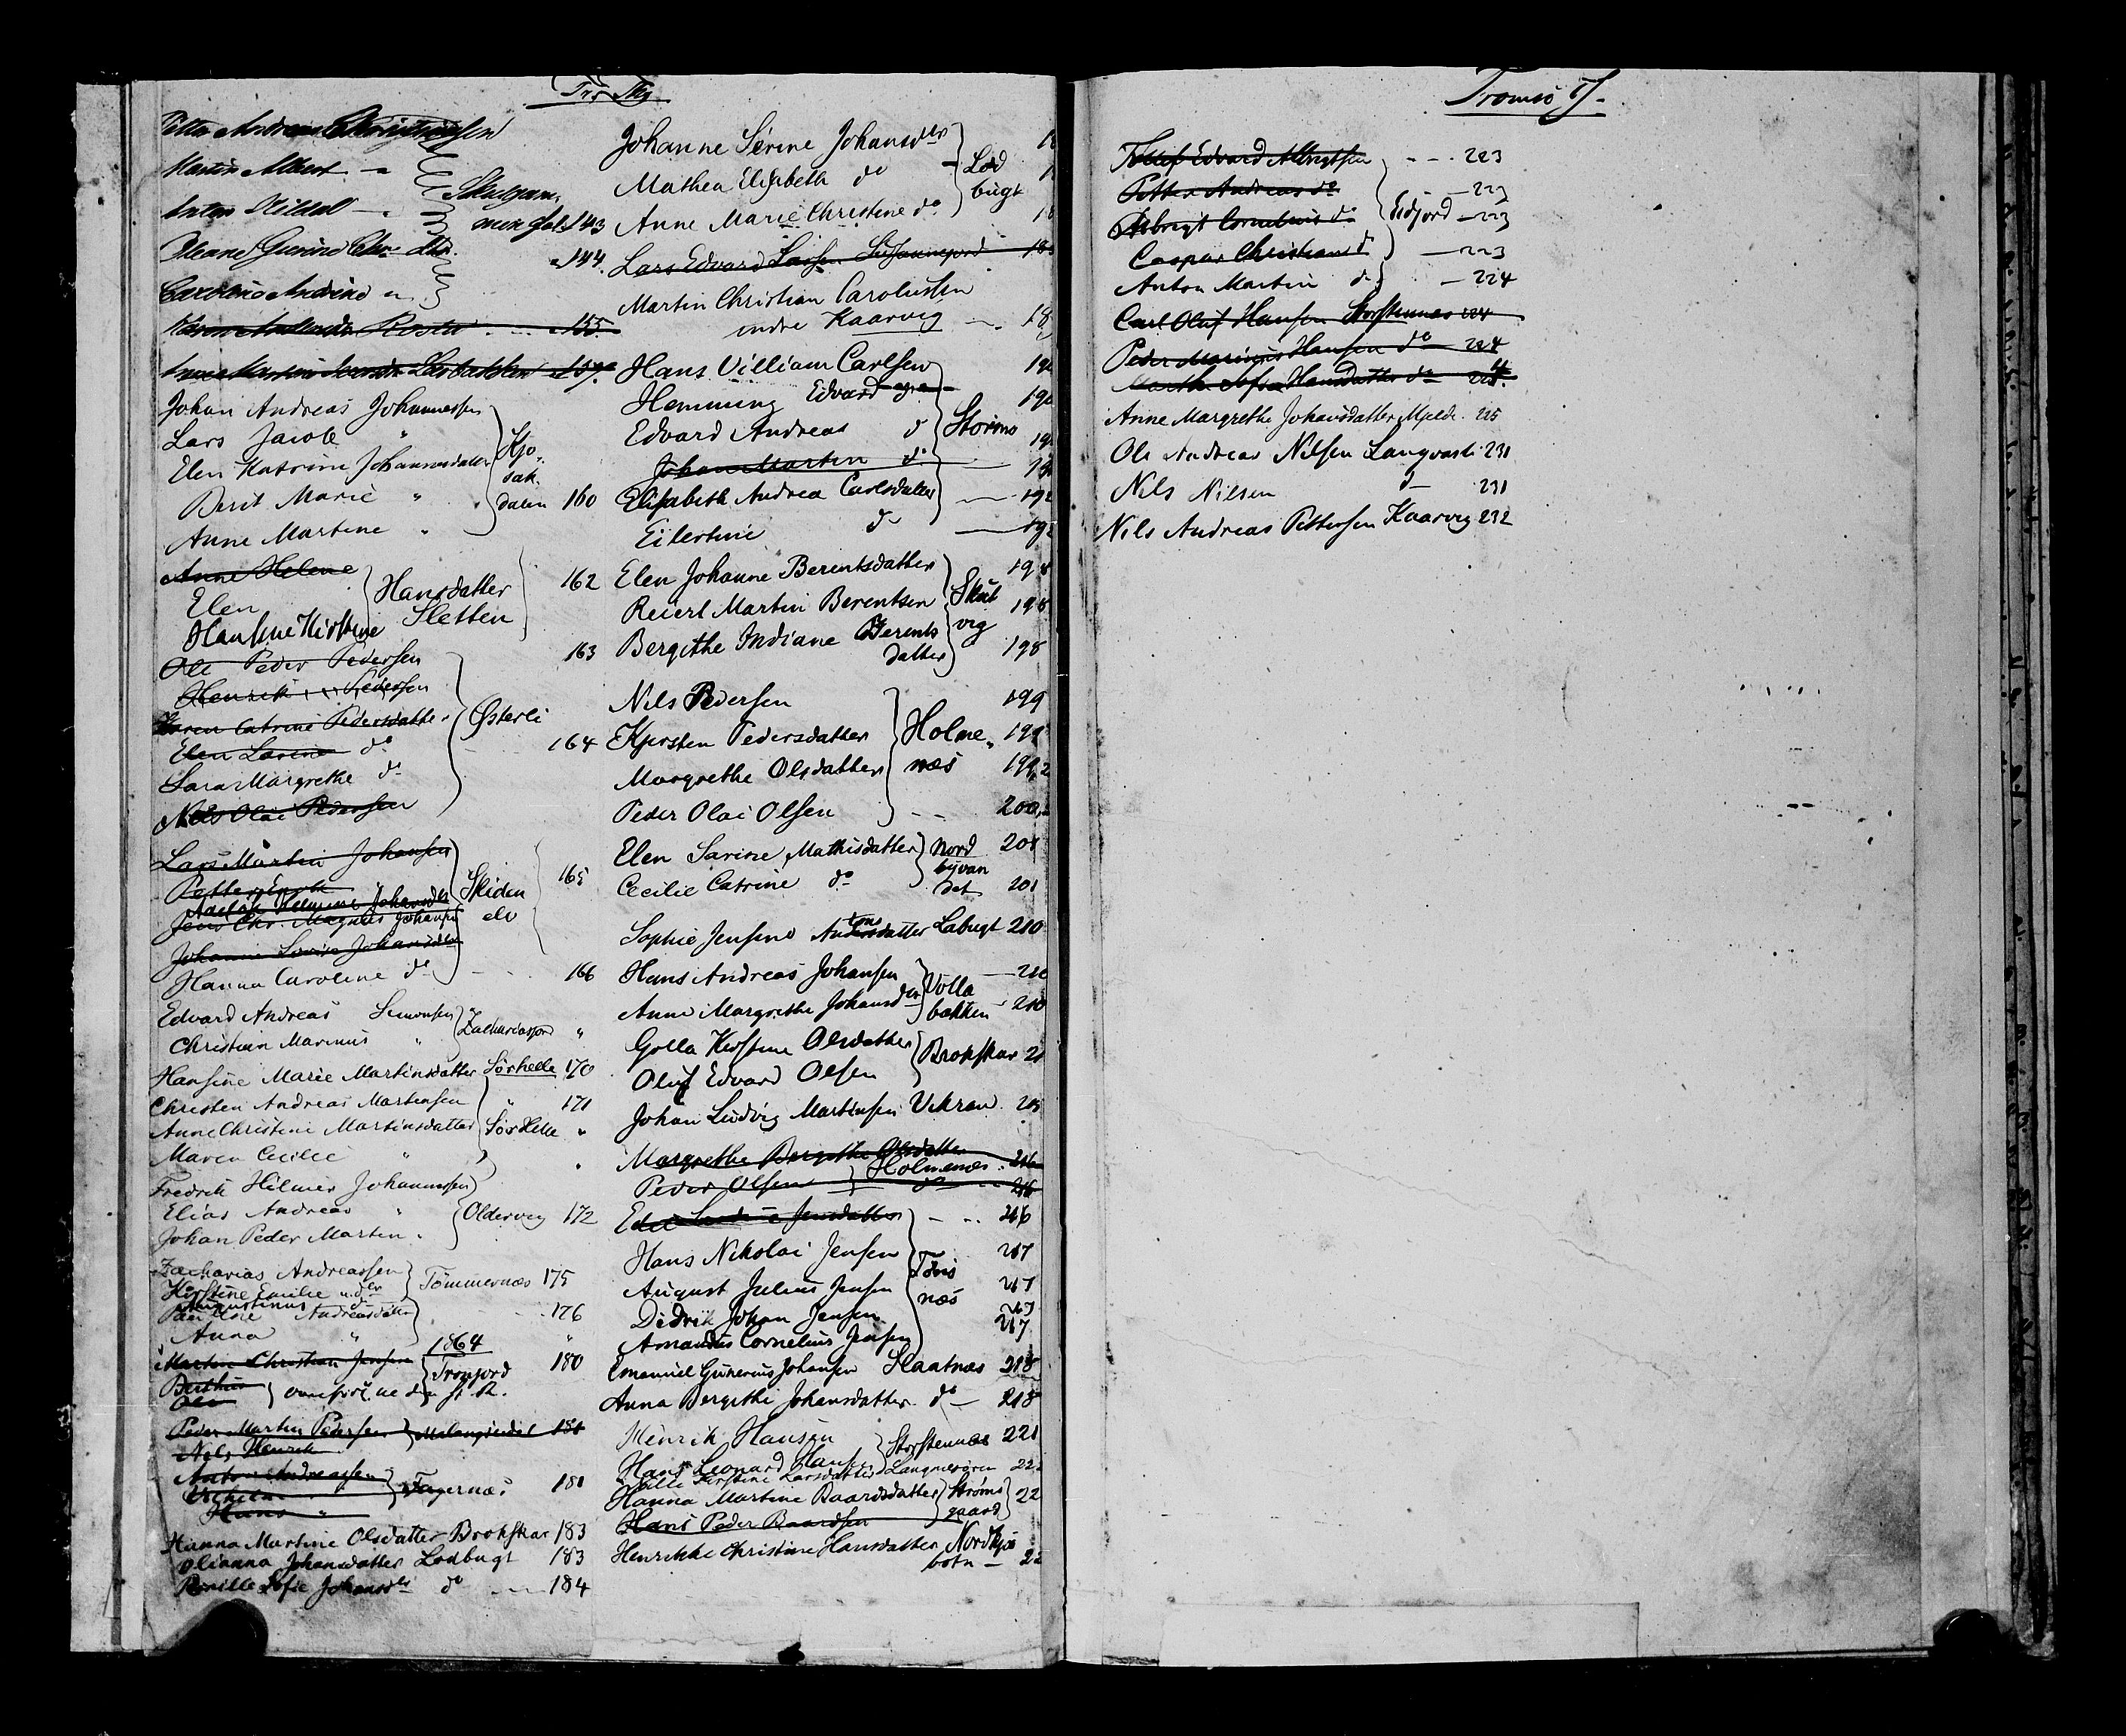 Petter Andreas
Martin Albert
Anton
Skulgam
men fol. 143
144
Caroline Andrine
155
157
Johan Andreas Johannessen
Lars Jacob "
Elen Katrine Johannesdatter
Berit Marie "
Anne Martine "
Kjosakdalen 160
Anne Helene
Elen
Hansine Kirstine
Hansdatter
Sletten
162
Ole Peder Pedersen 163
Henrik Pedersen
Karen Catrine Pedersdatter
Elen Larine do
Sara Margrethe do
Nils Olai Pedersen
Østerli
164
Lars Martin Johansen
Petter
Jens Chr. Magnus Johansen
Hanna Caroline do
Skidenelv
165
166
Edvard Andreas Simonsen
Christian Marinus "
"
Hansine Marie Martinsdatter Sørhelle 170
Christen Andreas Martinsen " 171
Anne Christine Martinsdatter Sørhelle "
Maren Cecilie "
Fredrik Hilmer Johannessen
Elias Andreas "
Johan Peder Martin "
Oldervig 172
Zacharias Andreassen
Kirstine Emilie
Tømmernæs 175
Augustinus
Andreasdatter 176
Anna " "
1864
Martin Christian Jensen
Tronfjord 180
Berthus
Ole
Peder Martin Pedersen
Nils Henrik
181
Anton Andreassen
Vilhelm
Hans "
Fagernæs 181
Hanna Martine Olsdatter Brokskar 183
Olianna Johansdatter Lodbugt 183
Pernille Sofie Johansdtr do 184
Johanne Serine Johansdtr
Mathea Elisabeth do
Anne Marie Christine do
Lodbugt
Lars Edvard Larsen
Martin Christian Carolussen
indre Kaarvig 18
Hans Villiam Carlsen
Hemming Edvard do
Edvard Andreas do
Johan Martin do
Elisabeth Andrea Carlsdatter
Eilertine do
Stormo
Elen Johanne Berentsdatter 198
Reiert Martin Berentsen 198
Bergithe Indiane Berentsdatter 198
Skutvig
Nils Pedersen 199
Kjersten Pedersdatter 199
Margrethe Olsdatter 199
Peder Olai Olsen 200
Holmenæs
Elen Sarine Mathisdatter 201
Cecilie Catrine do 201
Nordbyvandet
Sophie Jensine Antonsdatter Labugt 210
Hans Andreas Johansen 210
Anne Margrethe Johansdtr 210
Vollabakken
Golla Kirstine Olsdatter
Oluf Edvard Olsen
Brokskar 21
Johan Ludvig Martinsen Vikran 215
Margrethe Bergithe Olsdatter
Holmenæs 216
Peder Olsen do 216
Jensdatter 216
Hans Nikolai Jensen 217
August Julius Jensen 217
Didrik Johan Jensen 217
Amandus Cornelius Jensen 217
Emanuel Gunerius Johansen Slaatnæs 218
Anna Bergithe Johansdatter do 218
Henrik Hansen Storstennæs 221
Hans Leonard Hansen
Kirstine Larsdatter Langnesøren 22
Hanna Martine Baardsdatter
Hans Peder Baardsen
Strømsgaard 22
Henrikke Christine Hansdatter Nordkjosbotn 22
Tromsø
Edvard Albrigtsen 223
Petter Andreas do 223
Albrigt Cornelius do 223
Caspar Christian do 223
Anton Martin do 224
Eidfjord
Carl Oluf Hansen Storstennes 224
Peder Marinus Hansen do 224
Marthe Sofie Hansdatter do 224
Anne Margrethe Johansdatter Mjelde 225
Ole Andreas Nilsen Langvasli 231
Nils Nilsen do 231
Nils Andreas Pettersen Kaarvig 232